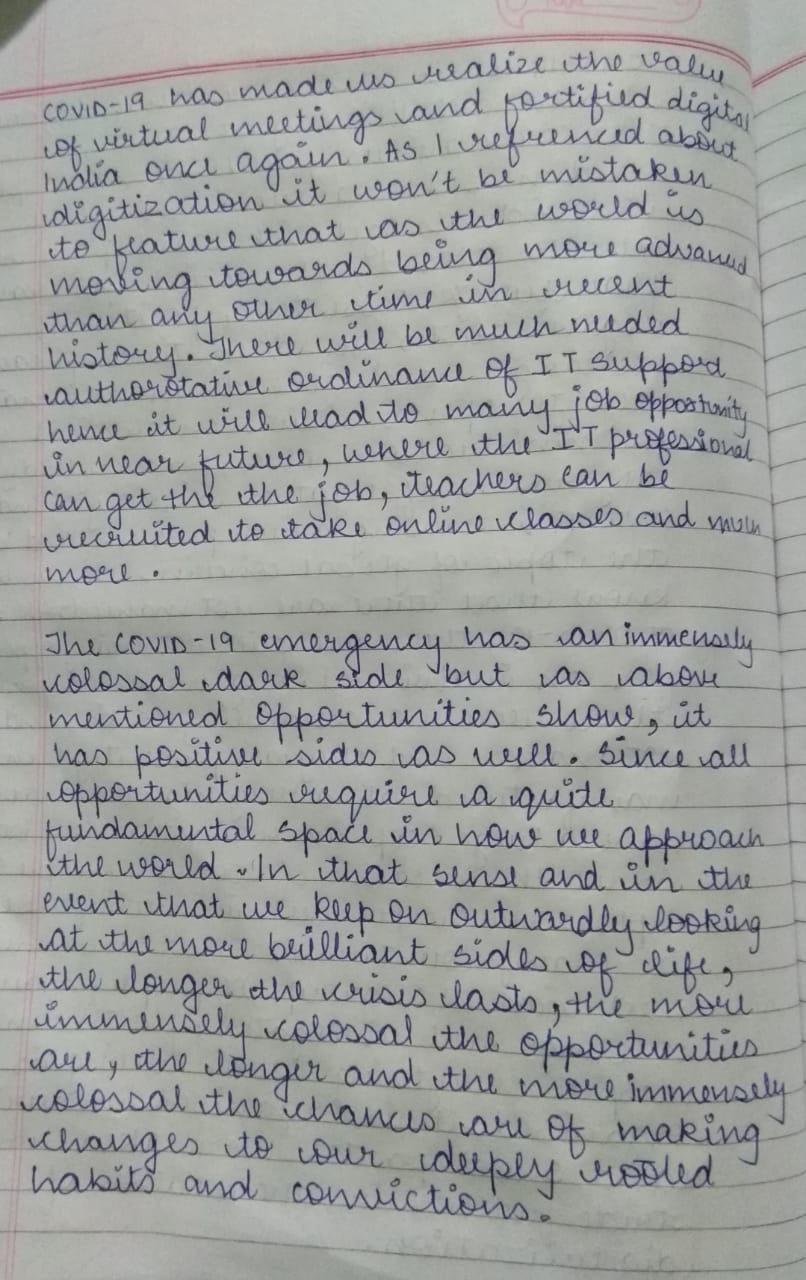 COVID-19 has made us realize the value
of virtual meetings and fortified digital
India once again. As I referenced about
digitization it won't be mistaken
to feature that as the world is
moving towards being more advanced
than any other time in recent
history. There will be much needed
authorotative ordinance of IT support
hence it will lead to many job opportunity
in near future, where the IT professional
can get the the job, teachers can be
recruited to take online classes and much
more.
The COVID-19 emergency has an immensely
colossal dark side but as above
mentioned opportunities show, it
has positive sides as well. Since all
opportunities require a quite
fundamental space in how we approach
the world. In that sense and in the
event that we keep on outwardly looking
at the more brilliant sides of life,
the longer the crisis lasts, the more
immensely colossal the opportunities
are, the longer and the more immensely
colossal the chances are of making
changes to our deeply rooted
habits and convictions.